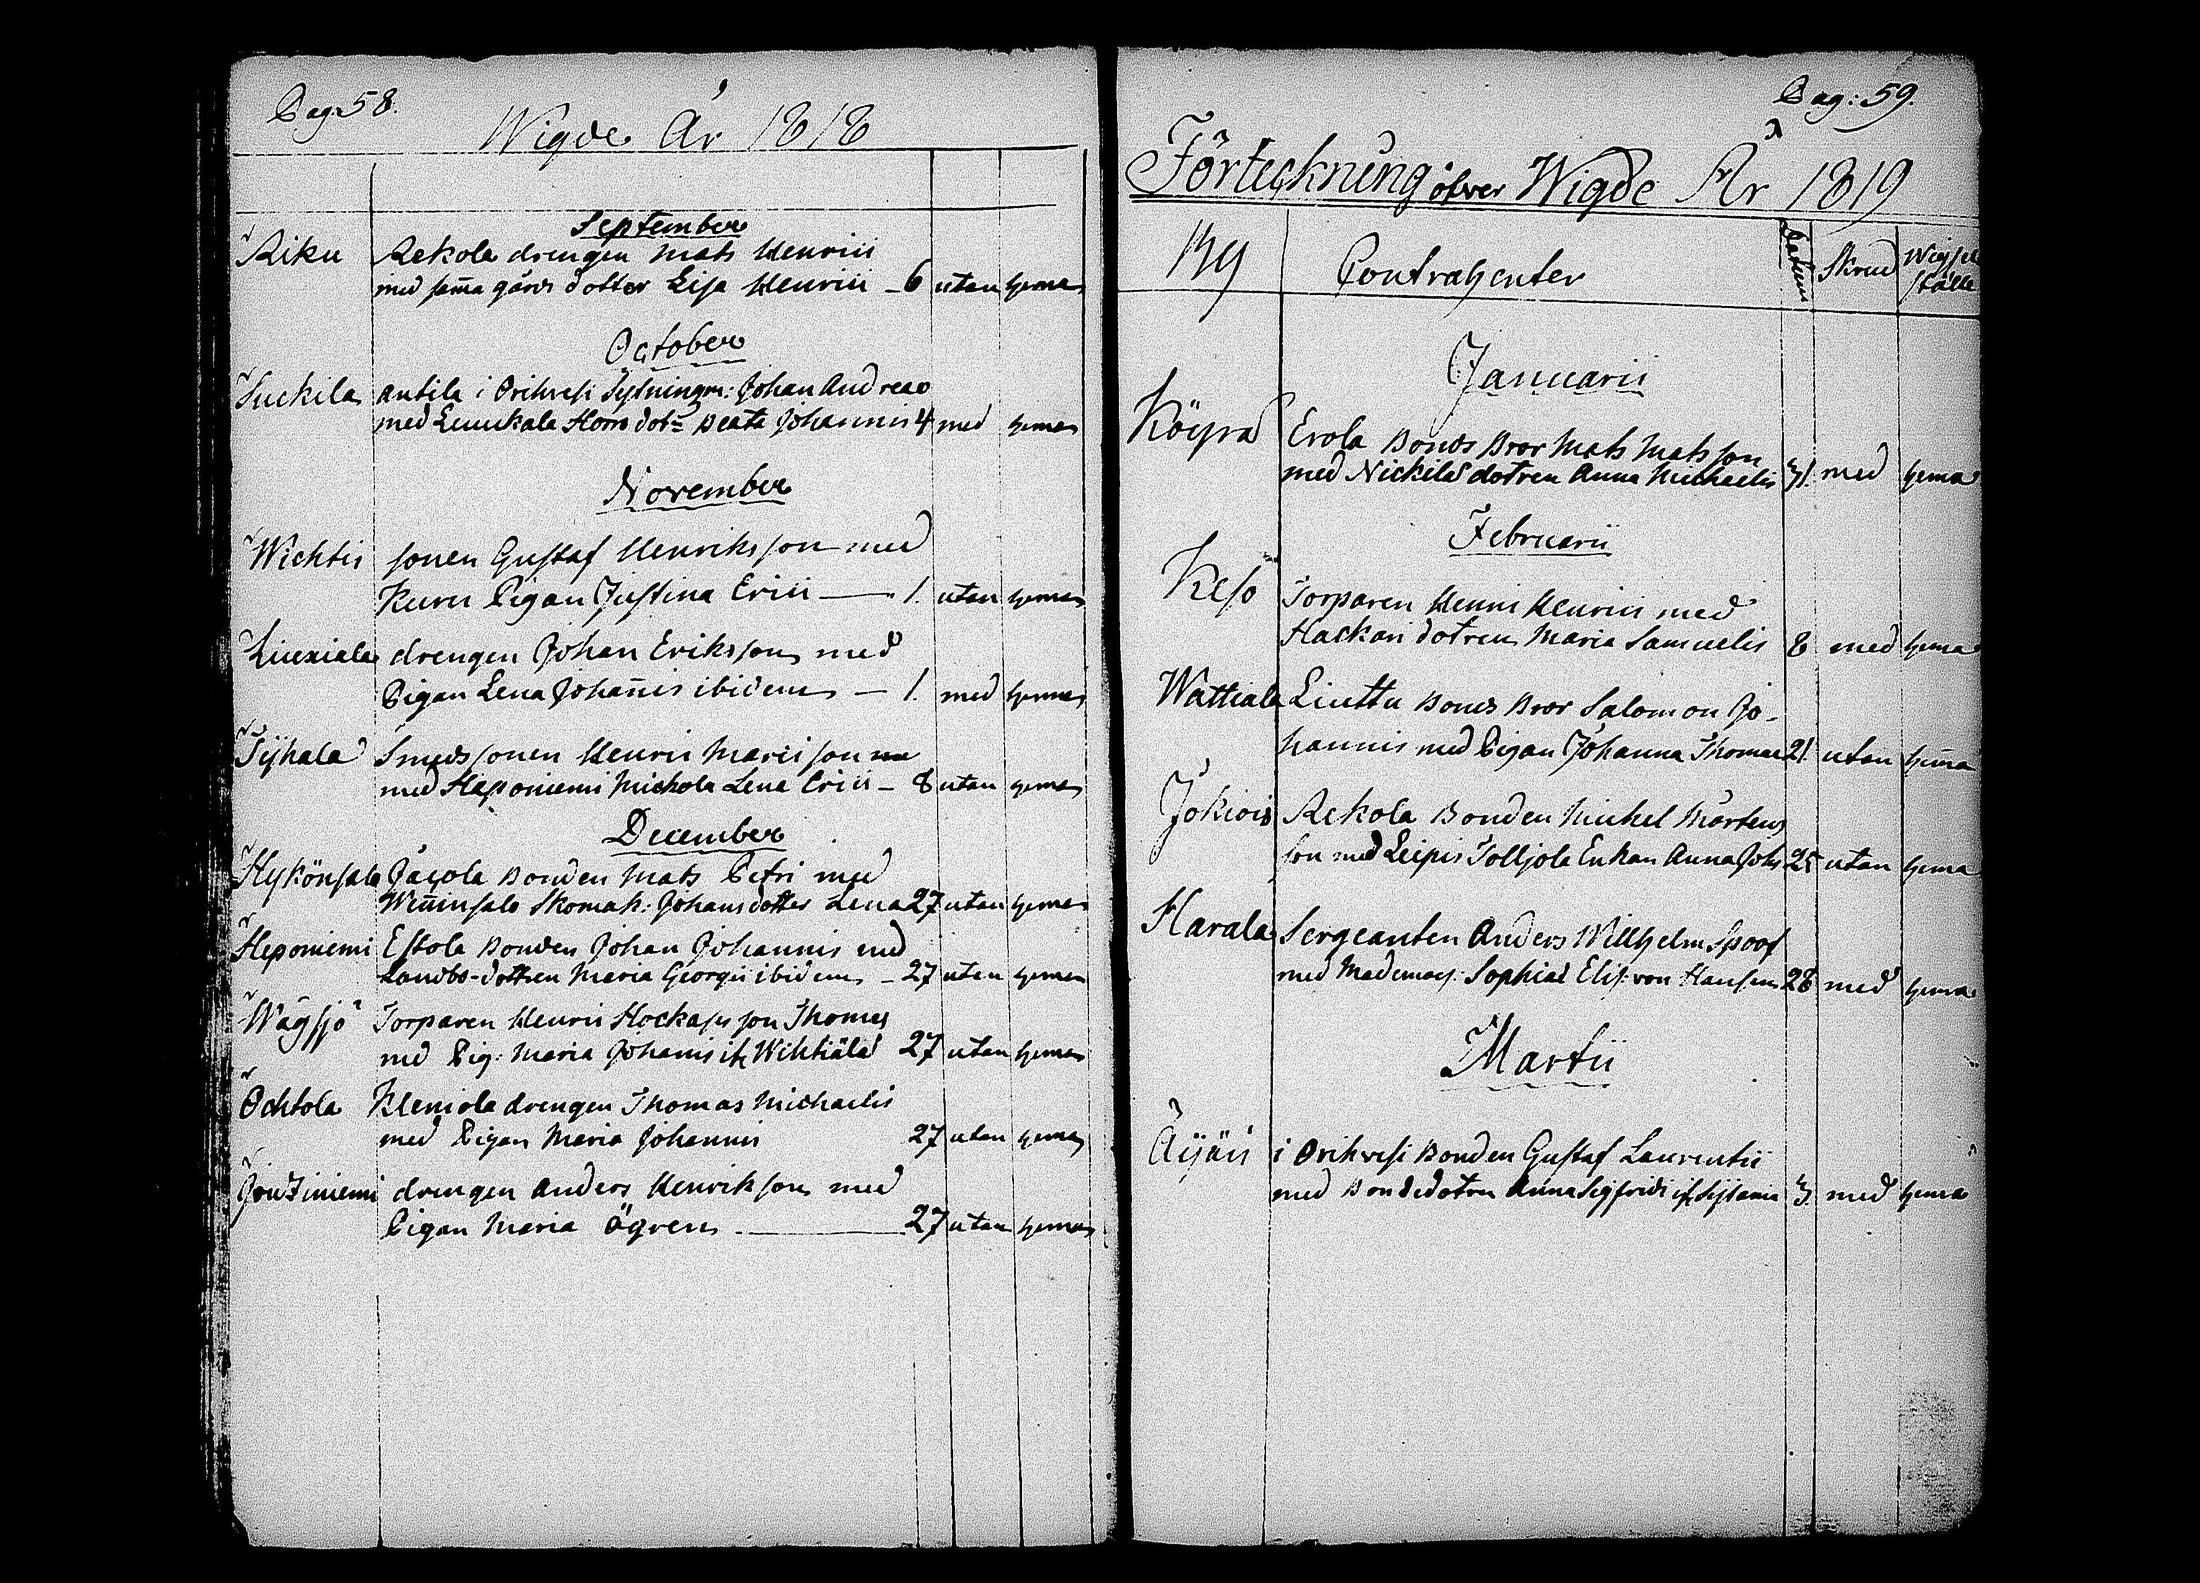 Pag: 58.
Wigde År 1818
September
Riku Rekola drengen Mats Henrici
med samma gårds dotter Lisa Henrici - 6 utan hema
October
Suckila Antila i Orihvesi Sytningm: Johan Andreae
med Leuukala Horrs dotr Beata Johannis 4 med hema
November
Wichtis sonen Gustaf Henriksson med
Kuru Pigan Justina Erici — 1. utan hema
Liuxiala drengen Johan Eriksson med
Pigan Lena Johannis ibidem — 1. med hema
Tyhala Smedssonen Henric Maricsson
med Haponiemi Michola Lena Erici — 8 utan hema
December
Hykönsala Jacola Bonden Mats Petri med
Winninsalo Skomak: Johansdotter Lena 27 utan hema
Heponiemi Eskola Bonden Johan Johannis med
Landbo-dottren Maria Georgii ibidem - 27 utan hema
Wågsjö Torparen Henric Hockaps son Thomas
med Pig: Maria Johannis if Wihtiälä 27 utan hema
Ochtola Klemola drengen Thomas Michaelis
med Pigan Maria Johannis 27 utan hema
Jouziniemi drengen Anders Henriksson med
Pigan Maria Ögren — 27 utan hema
Pag: 59.
Förteckning öfver Wigde År 1819
By Contrahenter Datum Skrud Wigsel
ställe
Januarii
Köyrä Erola Bonds Bror Mats Matsson
med Nickilä dotren Anna Michaelis 31. med hema
Februarii
Keso Torparen Henric Henrici med
Hackari dotren Maria Samuelis 8 med hema
Wattiala Liuttu Bonds Bror Salomon Jo-
hannis med Pigan Johanna Thomae 21. utan hema
Jokiois Rekola Bonden Michel Mårtens
son med Leipis Tolljola Enkan Anna Johs 25 utan hema
Harala Sergeanten Anders Willhelm Spoof
med Mademois: Sophia Elis: von Hausen 28 med hema
Martii
Äijäis i Orihvesi Bonden Gustaf Laurentii
med Bondedotren Anna Sigfridi if Systämä 3. med hema